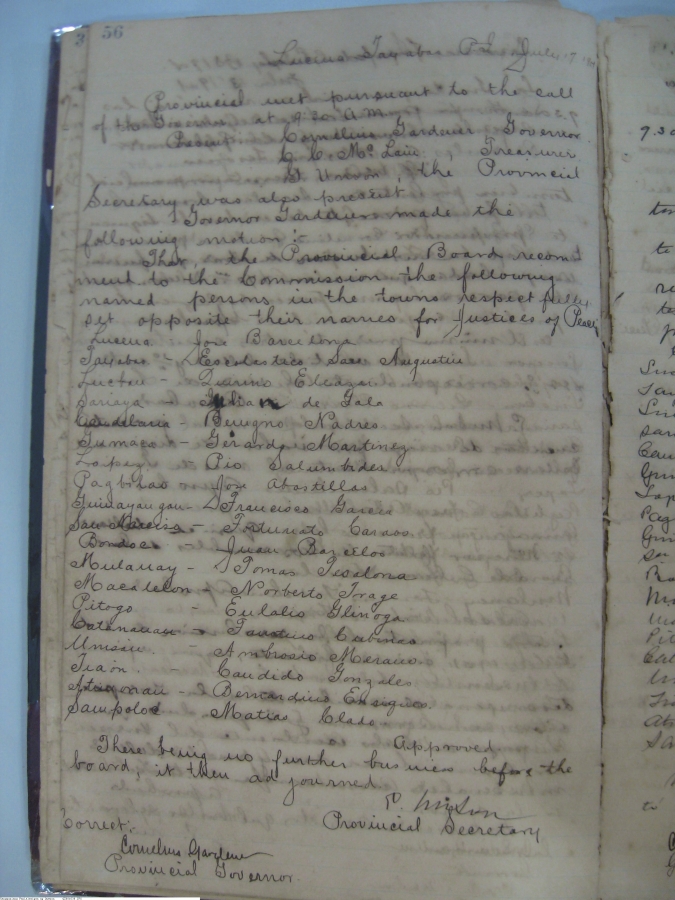 3 56
Lucena Tayabas P.I. July 17
Provincial met pursuant to the call
of the Governor at 9:30 A.M.
Present Cornelius Gardener Governor
, Treasurer
the Provincial
Secretary was also present
Governor Gardener made the
following motion:-
That the Provincial Board recom
mend to the Commission the following
named persons in the towns respectfully
set opposite their names for Justices of Peace
Lucena José Barcelona
Tayabas - Escolastico San Agustin
Lucban -
Sariaya - Julian de Gala
Candelaria - Benigno Nadres
Gumaca - Gerardo Martinez
Lopez - Pio Salumbides
Pagbilao - José Abastillas
Guinayangan - Francisco Garcia
San Narciso - Fortunato
Bondoc - Juan Barcelos
Mulanay - Tomas Tesalona
Macalelon - Norberto Torage
Pitogo - Eulalio Glinoga
Catanauan - Faustino Cabinas
Unisan - Ambrosio
Tiaon - Candido Gonzales
Atimonan - Bernardino
Sampoloc Matias Clado
Approved
There being no further business before the
board, it then adjourned.
Provincial Secretary
Correct:
Cornelius Gardener
Provincial Governor.